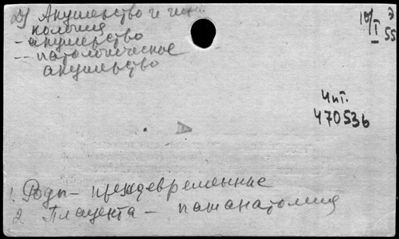 2) Акушерство и гин.
кология
- акушерство
-- патологическое
акушерство
Чит.
470536
1. Роды - преждевременные
2. Плацента - патанатомия